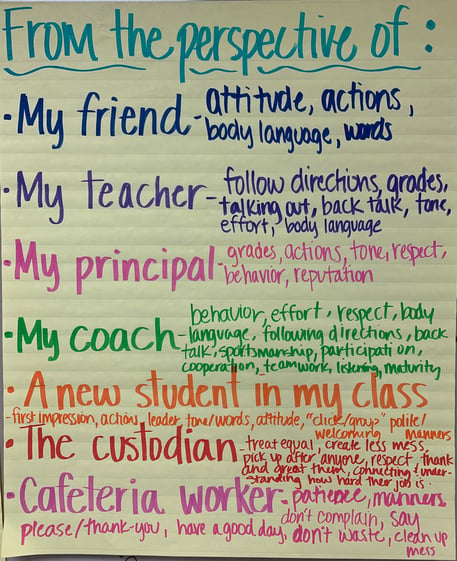 From the perspective of :
• My friend - attitude, actions,
body language, words
• My teacher - follow directions, grades,
talking out, back talk, tone,
effort, body language
• My principal - grades, actions, tone, respect,
behavior, reputation
behavior, effort, respect, body
• My coach - language, following directions, back
talk, sportsmanship, participation,
cooperation, teamwork, listening, maturity
• A new student in my class
- first impression, actions, leader tone/words, attitude, "click/group" polite/
welcoming manners
• The custodian - treat equal, create less mess,
pick up after anyone, respect, thank
and great them, connecting/under-
standing how hard their job is.
• Cafeteria worker - patience, manners,
don't complain, say
please/thank-you, have a good day, don't waste, clean up
mess